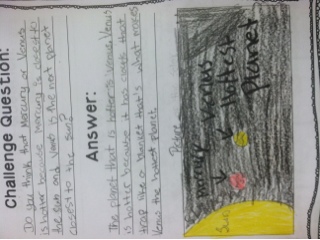 Challenge Question:
Do you think that Mercury or Venus
is hotter because mercury is closest to
the sun and Venus is the next planet
closest to the sun?
Answer:
The planet that is hotter is Venus. Venus
is hotter because it has gases that
trap like a blanket that's what makes
Venus the hotest planet.
Picture
Mercury
Venus
Hottest
Planet
Sun